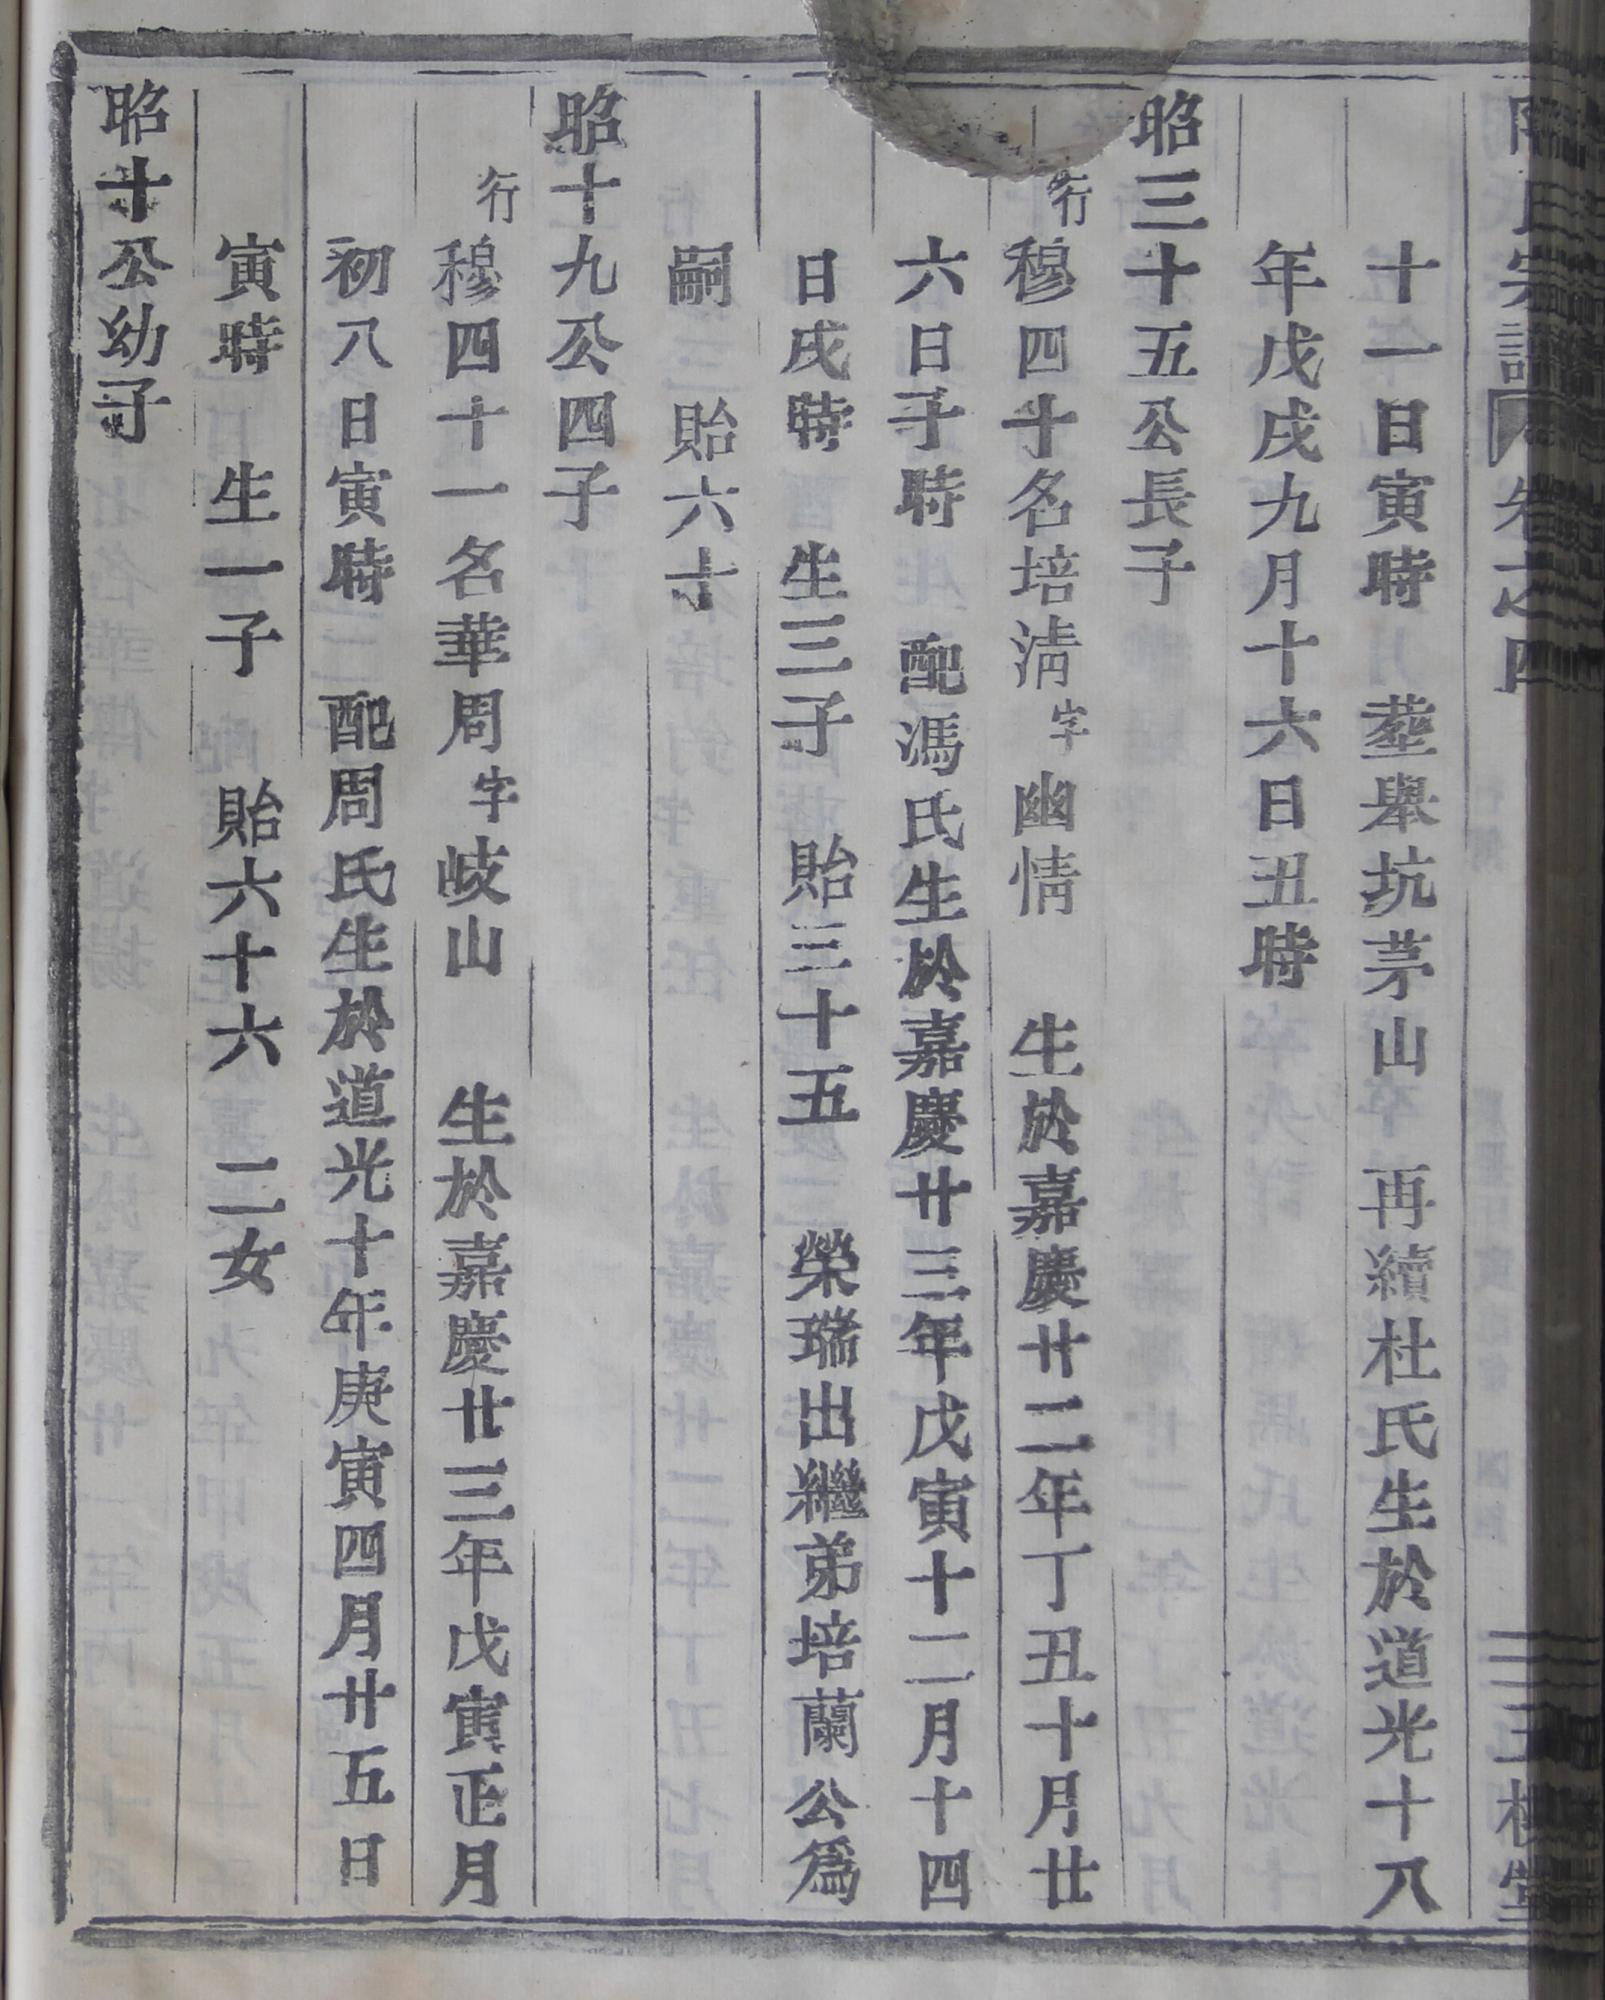 氏宗譜 卷之四
十一日寅時 塟舉坑茅山 再續杜氏生於道光十八
年戊戌九月十六日丑時
昭三十五公長子
行穆四十名培淸字幽情 生於嘉慶廿二年丁丑十月廿
六日子時 配馮氏生於嘉慶廿三年戊寅十二月十四
日戌時 生三子 貽三十五 榮瑞出繼弟培蘭公爲
嗣 貽六十
昭十九公四子
行穆四十一名華周字岐山 生於嘉慶廿三年戊寅正月
初八日寅時 配周氏生於道光十年庚寅四月廿五日
寅時 生一子 貽六十六 二女
昭十公幼子